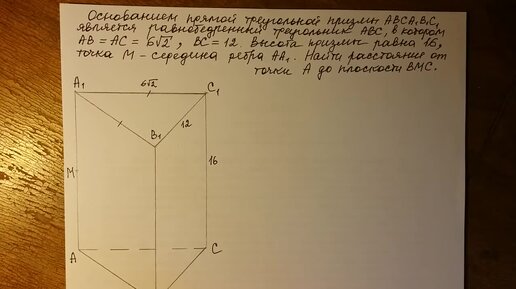 Основанием прямой треугольной призмы ABCA₁B₁C₁
является равнобедренный треугольник ABC, в котором
AB = AC = 6√2, BC = 12. Высота призмы равна 16,
точка M - середина ребра AA₁. Найти расстояние от
точки A до плоскости BMC.
A₁
6√2
C₁
B₁
12
16
M
A
C